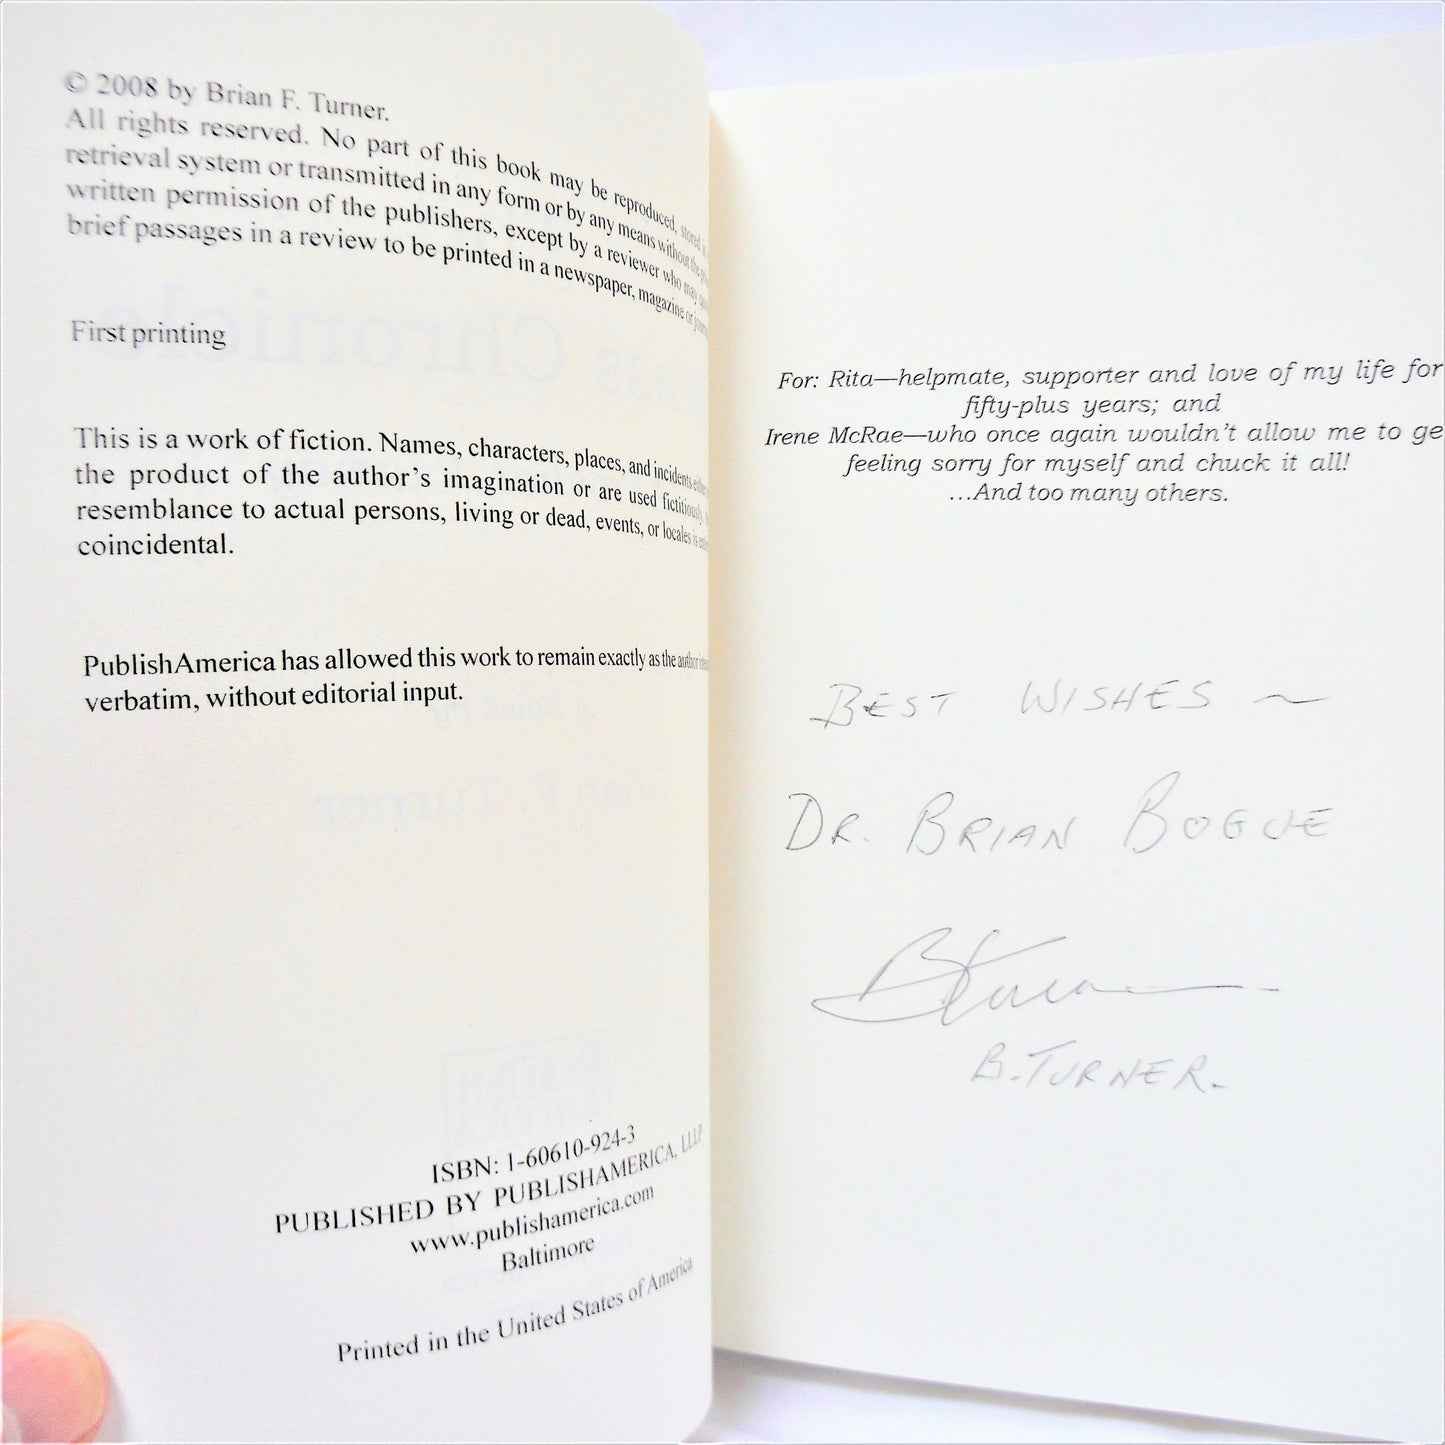 © 2008 by Brian F. Turner.
All rights reserved. No part of this book may be reproduced, stored in
retrieval system or transmitted in any form or by any means without the
written permission of the publishers, except by a reviewer who may
brief passages in a review to be printed in a newspaper, magazine or
First printing
This is a work of fiction. Names, characters, places, and incidents
the product of the author's imagination or are used fictitiously.
resemblance to actual persons, living or dead, events, or locales is
coincidental.
PublishAmerica has allowed this work to remain exactly as the author
verbatim, without editorial input.
ISBN: 1-60610-924-3
PUBLISHED BY PUBLISHAMERICA, LLLP
www.publishamerica.com
Baltimore
Printed in the United States of America
For: Rita—helpmate, supporter and love of my life for
fifty-plus years; and
Irene McRae—who once again wouldn't allow me to ge
feeling sorry for myself and chuck it all!
...And too many others.
BEST WISHES ~
DR. BRIAN BOGUE
B Turner
B. TURNER.
Chronicle
A Novel By
Brian F. Turner
PUBLISH
AMERICA